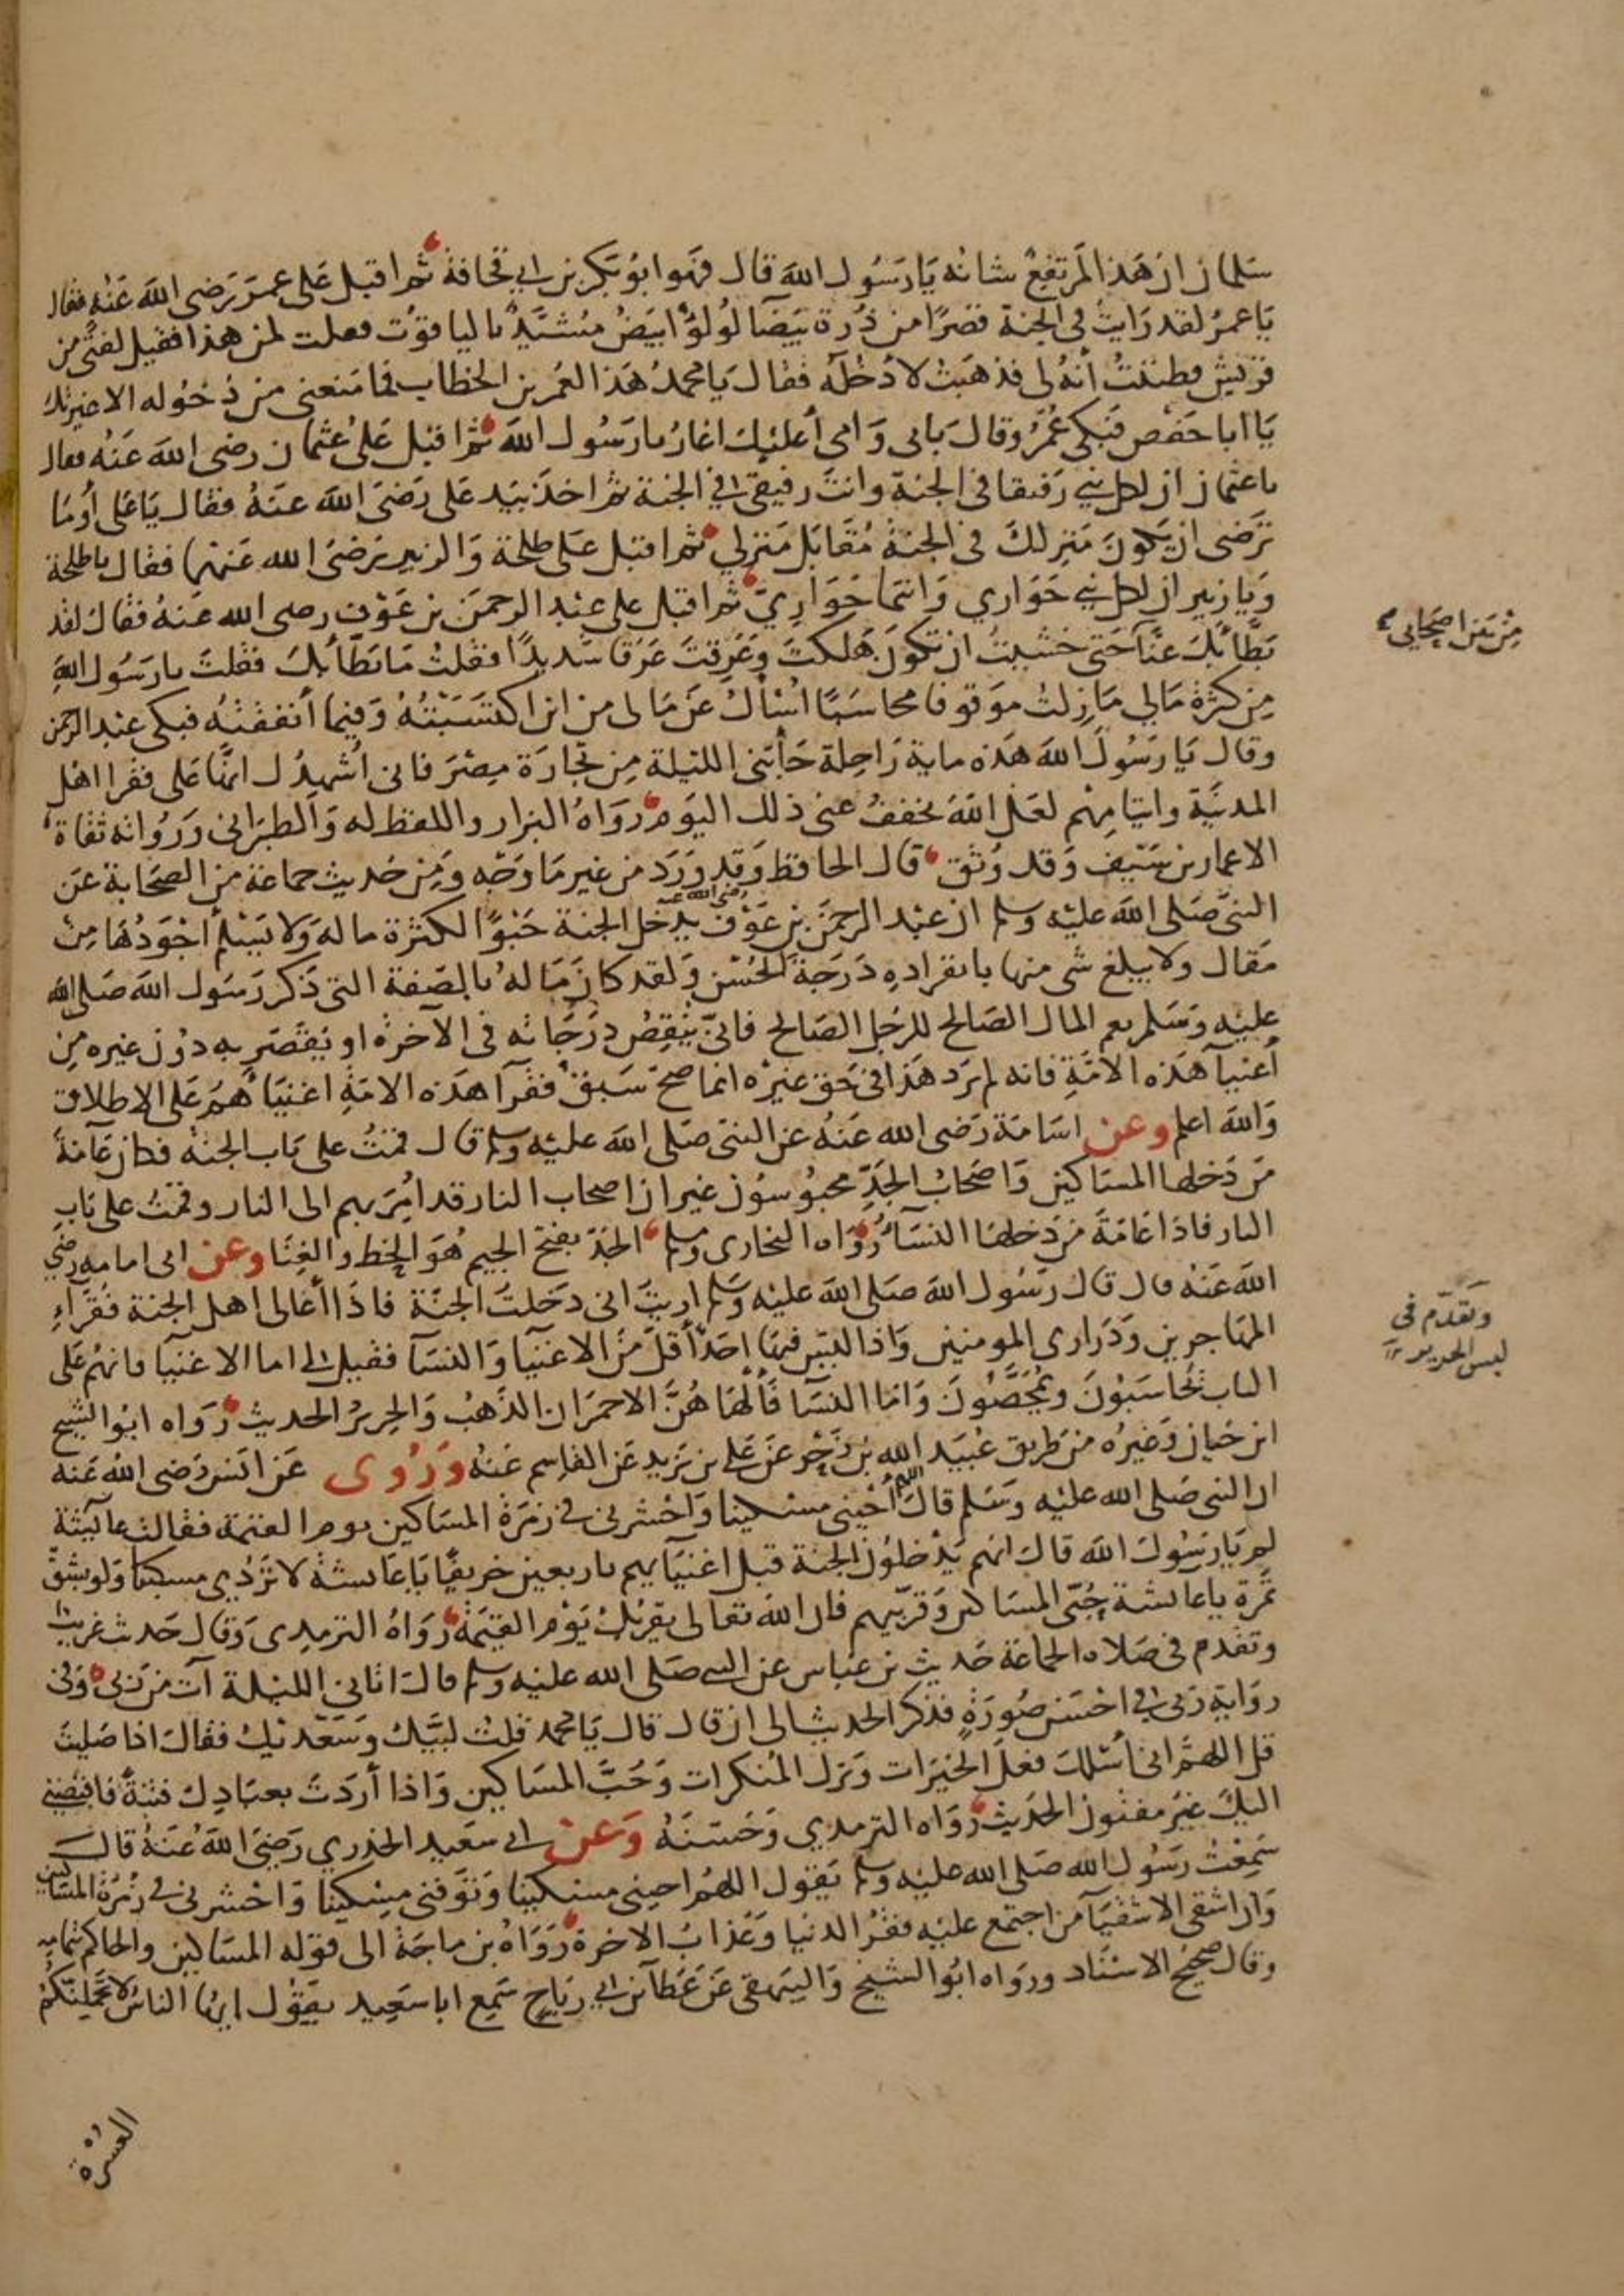 سلمان ان هذا لمرتفع شانه يارسول الله قال فهو ابو بكر بن ابي قحافة ثم اقبل على عمر رضي الله عنه فقال
يا عمر لقد رايت في الجنة قصرا من درة بيضا لولؤ ابيض مشيد بالياقوت فقلت لمن هذا فقيل لفتى من
قريش فظننت أنه لي فذهبت لادخله فقال يا محمد هذا لعمر بن الخطاب فما منعني من دخوله الا غيرتك
يا ابا حفص فبكى عمر وقال بابي وامي أعليك اغار يارسول الله ثم اقبل على عثمان رضي الله عنه فقال
ياعثمان ان لكل نبي رفيقا في الجنة وانت رفيقي في الجنة ثم اخذ بيد علي رضي الله عنه فقال ياعلي أوما
ترضى ان يكون منزلك في الجنة مقابل منزلي ثم اقبل على طلحة والزبير رضي الله عنهما فقال ياطلحة
ويا زبير ان لكل نبي حواري وانتما حواري ثم اقبل على عبد الرحمن بن عوف رضي الله عنه فقال لقد
بطّأ بك عنا حتى خشيت ان تكون هلكت وعرقت عرقا شديدا فقلت ما بطّأ بك فقلت يارسول الله
من كثرة مالي مازلت موقوفا محاسبا اسأل عن مالي من اين اكتسبته وفيما أنفقته فبكى عبد الرحمن
وقال يا رسول الله هذه ماية راحلة جأتني الليلة من تجارة مصر فاني اشهدك انها على فقرا اهل
المدينة وايتامهم لعل الله يخفف عني ذلك اليوم رواه البزار واللفظ له والطبراني ورواته ثقاة
الا عمار بن سيف وقد وثق قال الحافظ وقد ورد من غير ما وجه ومن حديث جماعة من الصحابة عن
النبي صلى الله عليه وسلم ان عبد الرحمن بن عوف رضي الله عنه يدخل الجنة حبوا لكثرة ماله ولا يسلم أجودها من
مقال ولا يبلغ شي منها بانفراده درجة الحسن ولقد كان ماله بالصفة التي ذكر رسول الله صلى الله
عليه وسلم نعم المال الصالح للرجل الصالح فانّى ينقص درجاته في الآخرة او يقصر به دون غيره من
أغنيآ هذه الامة فانه لم يرد هذا في حق غيره انما صح سبق فقرآ هذه الامة اغنيآهم على الاطلاق
والله اعلم وعن اسامة رضي الله عنه عن النبي صلى الله عليه وسلم قال قمت على باب الجنة فكان عامة
من دخلها المساكين واصحاب الجد محبوسون غير ان اصحاب النار قد امر بهم الى النار وقمت على باب
النار فاذا عامة من دخلها النسآ رواه البخاري ومسلم الجد بفتح الجيم هو الحظ والغنا وعن ابي امامه رضي
الله عنه قال قال رسول الله صلى الله عليه وسلم اريت اني دخلت الجنة فاذا أعالي اهل الجنة فقرآء
المهاجرين وذراري المومنين واذا ليس فيها احد أقل من الاغنيآ والنسآ فقيل لي اما الاغنيآ فانهم على
الباب يحاسبون ويمحصون واما النسآ فألهاهن الاحمران الذهب والحرير الحديث رواه ابو الشيخ
ابن حبان وغيره من طريق عبيد الله بن زحر عن علي بن يزيد عن القاسم عنه وروى عن انس رضي الله عنه
ان النبي صلى الله عليه وسلم قال اللهم أحيني مسكينا واحشرني في زمرة المساكين يوم القيمة فقالت عآئيشة
لم يا رسول الله قال انهم يدخلون الجنة قبل اغنيآيهم باربعين خريفا ياعايشة لا تردي مسكينا ولو بشق
تمرة ياعايشة حبي المساكين وقربيهم فان الله تعالى يقربك يوم القيمة رواه الترمدي وقال حديث غريب
وتقدم في صلاه الجماعة حديث بن عباس عن النبي صلى الله عليه وسلم قال اتاني الليلة آت من ربي وفي
رواية ربي في احسن صورة فذكر الحديث الى ان قال قال يا محمد قلت لبيك وسعديك فقال اذا صليت
قل اللهم اني أسئلك فعل الخيرات وترك المنكرات وحب المساكين واذا أردت بعبادك فتنة فاقبضني
اليك غير مفتون الحديث رواه الترمدي وحسنه وعن ابي سعيد الخدري رضي الله عنه قال
سمعت رسول الله صلى الله عليه وسلم يقول اللهم احيني مسكينا وتوفني مسكينا واحشرني في زمرة المساكين
وان اشقى الاشقيآ من اجتمع عليه فقر الدنيا وعذاب الاخرة رواه بن ماجة الى قوله المساكين والحاكم بتمامه
وقال صحيح الاسناد ورواه ابو الشيخ والبيهقي عن عطآ بن ابي رباح سمع ابا سعيد يقول ايها الناس لا تحملنكم
العسرة
من بين اصحابي
وتقدم في
لبس الحرير